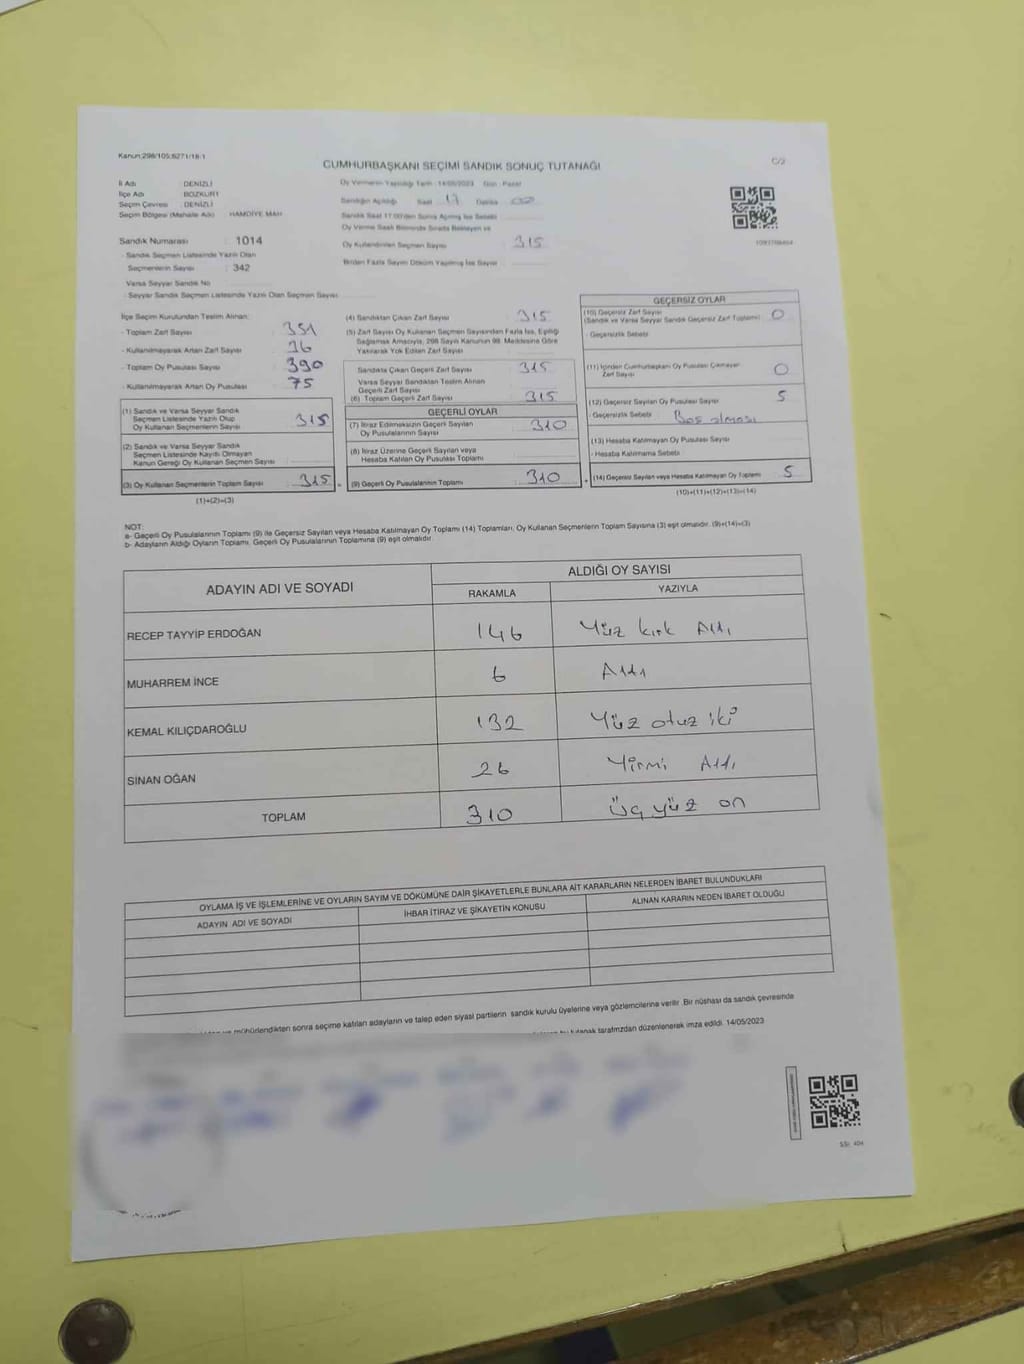 Kanun:298/105;6271/18-1
CUMHURBAŞKANI SEÇİMİ SANDIK SONUÇ TUTANAĞI
C/2
İl Adı DENİZLİ
İlçe Adı BOZKURT
Seçim Çevresi DENİZLİ
Seçim Bölgesi (Mahalle Adı) HAMDİYE MAH
Oy Vermenin Yapıldığı Tarih 14/05/2023 Gün Pazar
Sandığın Açıldığı Saat 17 Dakika 00
Sandık Saat 17:00'den Sonra Açılmış İse Sebebi
Oy Verme Saati Bitiminde Sırada Bekleyen ve
Oy Kullandırılan Seçmen Sayısı 315
Birden Fazla Sayım Döküm Yapılmış İse Sayısı
Sandık Numarası : 1014
- Sandık Seçmen Listesinde Yazılı Olan
Seçmenlerin Sayısı : 342
Varsa Seyyar Sandık No
- Seyyar Sandık Seçmen Listesinde Yazılı Olan Seçmen Sayısı
İlçe Seçim Kurulundan Teslim Alınan:
- Toplam Zarf Sayısı 351
- Kullanılmayarak Artan Zarf Sayısı 36
- Toplam Oy Pusulası Sayısı 390
- Kullanılmayarak Artan Oy Pusulası 75
(1) Sandık ve Varsa Seyyar Sandık
Seçmen Listesinde Yazılı Olup
Oy Kullanan Seçmenlerin Sayısı 315
(2) Sandık ve Varsa Seyyar Sandık
Seçmen Listesinde Kayıtlı Olmayan
Kanun Gereği Oy Kullanan Seçmen Sayısı
(3) Oy Kullanan Seçmenlerin Toplam Sayısı 315
(1)+(2)=(3)
(4) Sandıktan Çıkan Zarf Sayısı 315
(5) Zarf Sayısı Oy Kullanan Seçmen Sayısından Fazla İse, Eşitliği
Sağlamak Amacıyla, 298 Sayılı Kanunun 98. Maddesine Göre
Yakılarak Yok Edilen Zarf Sayısı
Sandıkta Çıkan Geçerli Zarf Sayısı 315
Varsa Seyyar Sandıktan Teslim Alınan
Geçerli Zarf Sayısı
(6) Toplam Geçerli Zarf Sayısı 315
GEÇERLİ OYLAR
(7) İtiraz Edilmeksizin Geçerli Sayılan
Oy Pusulalarının Sayısı 310
(8) İtiraz Üzerine Geçerli Sayılan veya
Hesaba Katılan Oy Pusulası Toplamı
(9) Geçerli Oy Pusulalarının Toplamı 310
GEÇERSİZ OYLAR
(10) Geçersiz Zarf Sayısı
(Sandık ve Varsa Seyyar Sandık Geçersiz Zarf Toplamı) 0
- Geçersizlik Sebebi
(11) İçinden Cumhurbaşkanı Oy Pusulası Çıkmayan
Zarf Sayısı 0
(12) Geçersiz Sayılan Oy Pusulası Sayısı 5
- Geçersizlik Sebebi : Boş olması
(13) Hesaba Katılmayan Oy Pusulası Sayısı
- Hesaba Katılmama Sebebi
(14) Geçersiz Sayılan veya Hesaba Katılmayan Oy Toplamı 5
(10)+(11)+(12)+(13)=(14)
NOT:
a- Geçerli Oy Pusulalarının Toplamı (9) ile Geçersiz Sayılan veya Hesaba Katılmayan Oy Toplamı (14) Toplamları, Oy Kullanan Seçmenlerin Toplam Sayısına (3) eşit olmalıdır. (9)+(14)=(3)
b- Adayların Aldığı Oyların Toplamı, Geçerli Oy Pusulalarının Toplamına (9) eşit olmalıdır.
ADAYIN ADI VE SOYADI
ALDIĞI OY SAYISI
RAKAMLA YAZIYLA
RECEP TAYYİP ERDOĞAN 146 Yüz kırk Altı
MUHARREM İNCE 6 Altı
KEMAL KILIÇDAROĞLU 132 Yüz otuz iki
SİNAN OĞAN 26 Yirmi Altı
TOPLAM 310 üç yüz on
OYLAMA İŞ VE İŞLEMLERİNE VE OYLARIN SAYIM VE DÖKÜMÜNE DAİR ŞİKAYETLERLE BUNLARA AİT KARARLARIN NELERDEN İBARET BULUNDUKLARI
ADAYIN ADI VE SOYADI
İHBAR İTİRAZ VE ŞİKAYETİN KONUSU
ALINAN KARARIN NEDEN İBARET OLDUĞU
mühürlendikten sonra seçime katılan adayların ve talep eden siyasi partilerin sandık kurulu üyelerine veya gözlemcilerine verilir. Bir nüshası da sandık çevresinde
tutanak tarafımızdan düzenlenerek imza edildi. 14/05/2023